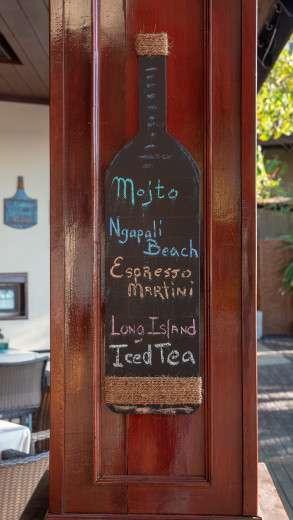 Mojto
Ngapali
Beach
Espresso
Martini
Long Island
Iced Tea